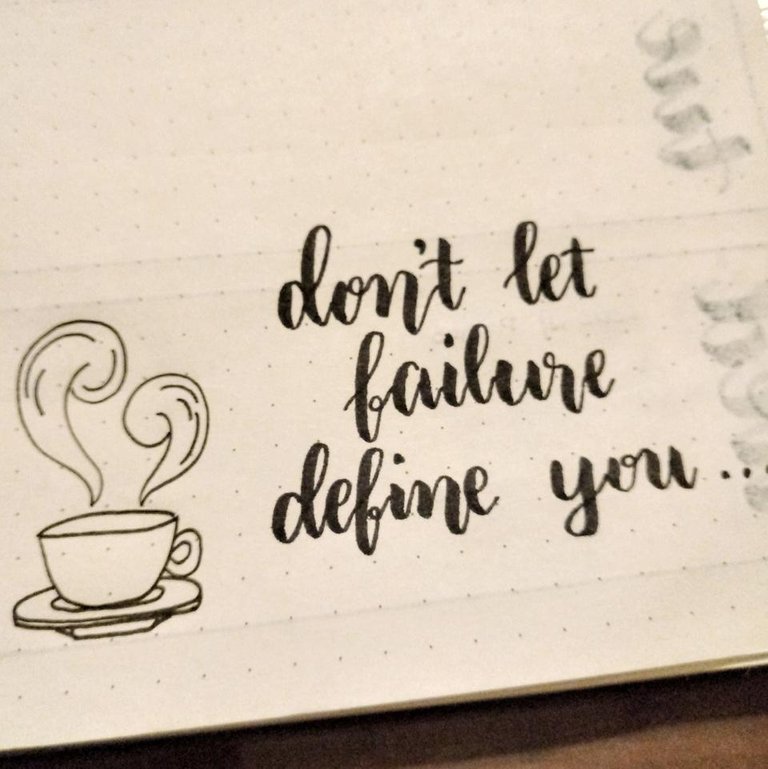 don't let
failure
define you...